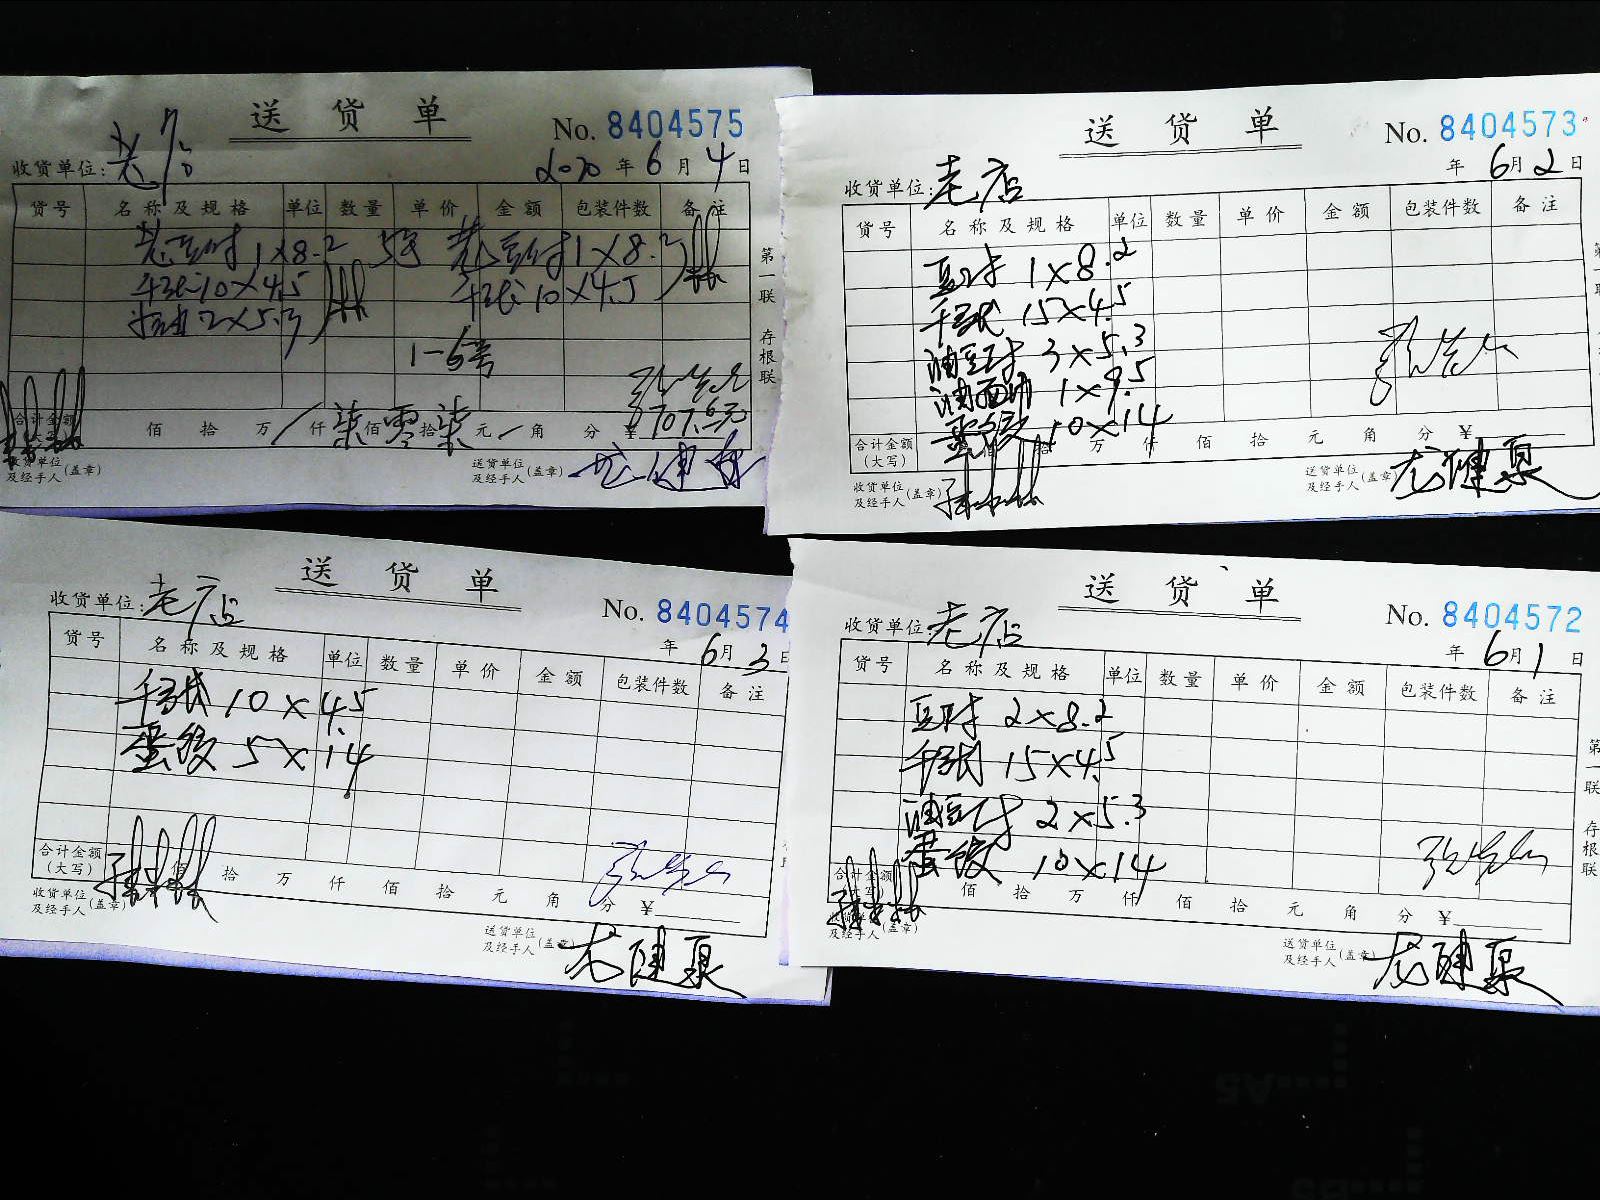 送货单
No. 8404575
收货单位: 老店
2020年6月4日
货号 名称及规格 单位 数量 单价 金额 包装件数 备注
1×8.2 5号 1×8.2
千张10×4.5 千张10×4.5
2×5.3
1-5号
合计金额(大写) 佰 拾 万 仟 柒佰零拾柒元 角 分 ¥707.6元
收货单位及经手人(盖章) 送货单位及经手人(盖章)
第一联 存根联
送货单
No. 8404573
收货单位: 老店
年6月2日
货号 名称及规格 单位 数量 单价 金额 包装件数 备注
豆付 1×8.2
千张 15×4.5
油豆付 3×5.3
1×9.5
蛋饺 10×14
合计金额(大写) 佰 拾 万 仟 佰 拾 元 角 分 ¥
收货单位及经手人(盖章) 送货单位及经手人(盖章)
送货单
收货单位: 老店
No. 8404574
年6月3日
货号 名称及规格 单位 数量 单价 金额 包装件数 备注
千张 10×4.5
蛋饺 5×14
合计金额(大写) 佰 拾 万 仟 佰 拾 元 角 分 ¥
收货单位及经手人(盖章) 送货单位及经手人(盖章)
送货单
No. 8404572
收货单位: 老店
年6月1日
货号 名称及规格 单位 数量 单价 金额 包装件数 备注
豆付 2×8.2
千张 15×4.5
油豆付 2×5.3
蛋饺 10×14
合计金额(大写) 佰 拾 万 仟 佰 拾 元 角 分 ¥
收货单位及经手人(盖章) 送货单位及经手人(盖章)
第一联 存根联